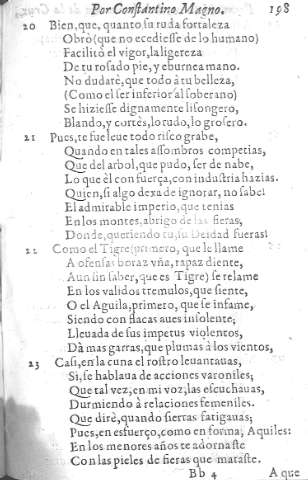 Por Constantino Magno. 198
20 Bien, que, quanto su ruda fortaleza
Obrò (que no ecediesse de lo humano)
Facilitò el vigor, la ligereza
De tu rosado pie, y eburnea mano.
No dudatè, que todo à tu belleza,
(Como el ser inferior al soberano)
Se hiziesse dignamente lisongero,
Blando, y cortès, lo rudo, lo grosero.
21 Pues, te fue leue todo risco grabe,
Quando en tales assombros competias,
Que del arbol, que pudo, ser de nabe,
Lo que èl con fuerça, con industria hazias.
Quien, si algo dexa de ignorar, no sabe
El admirable imperio, que tenias
En los montes, abrigo de las fieras,
Donde, queriendo tu, su Deidad fueras!
22 Como el Tigre (primero, que le llame
A ofensas boraz vña, rapaz diente,
Aun sin saber, que es Tigre) se relame
En los validos tremulos, que siente,
O el Aguila, primero, que se infame,
Siendo con flacas aues insolente;
Lleuada de sus impetus violentos,
Dà mas garras, que plumas à los vientos,
23 Casi, en la cuna el rostro leuantauas,
Si, se hablaua de acciones varoniles;
Que tal vez, en mi voz, las escuchauas,
Durmiendo à relaciones femeniles.
Que dirè, quando sierras fatigauas;
Pues, en esfuerço, como en forma, Aquiles:
En los menores años te adornaste
Con las pieles de fieras que mataste.
Bb 4 A que